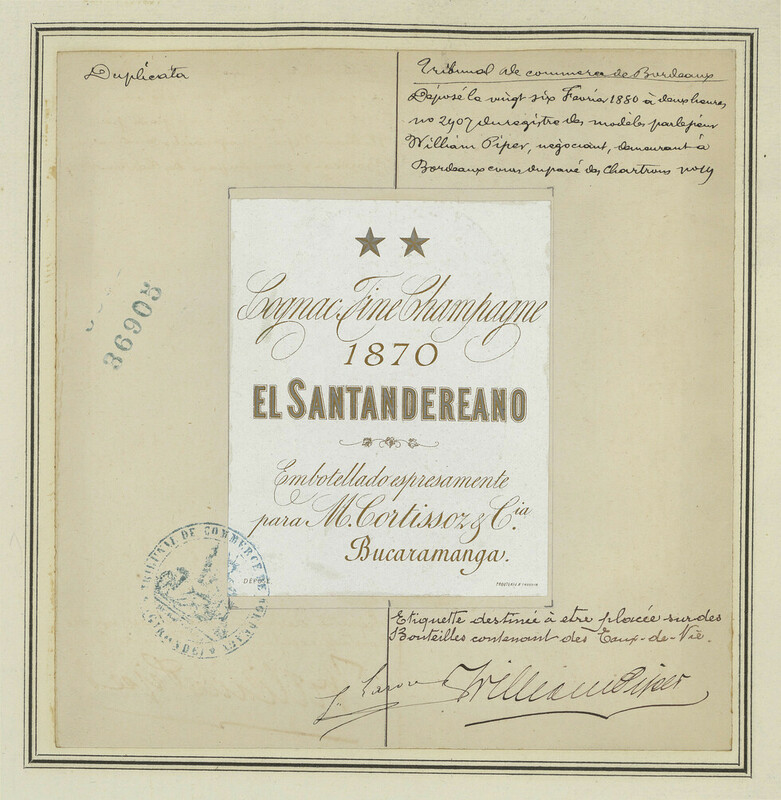 Duplicata
Tribunal de commerce de Bordeaux
Déposé le vingt six Fevrier 1880 à deux heures
no 2907 du registre des modèles par le sieur
William Piper, negociant, demeurant à
Bordeaux cours du pavé des Chartrons no 19
36905
Cognac Fine Champagne
1870
EL SANTANDEREANO
Embotellado espresamente
para M. Cortissoz & Cia.
Bucaramanga.
DÉPOSÉ
TRIBUNAL DE COMMERCE DE BORDEAUX
GIRONDE
Etiquette destinée à etre placée sur des
Bouteilles contenant des Eaux-de-Vie.
William Piper